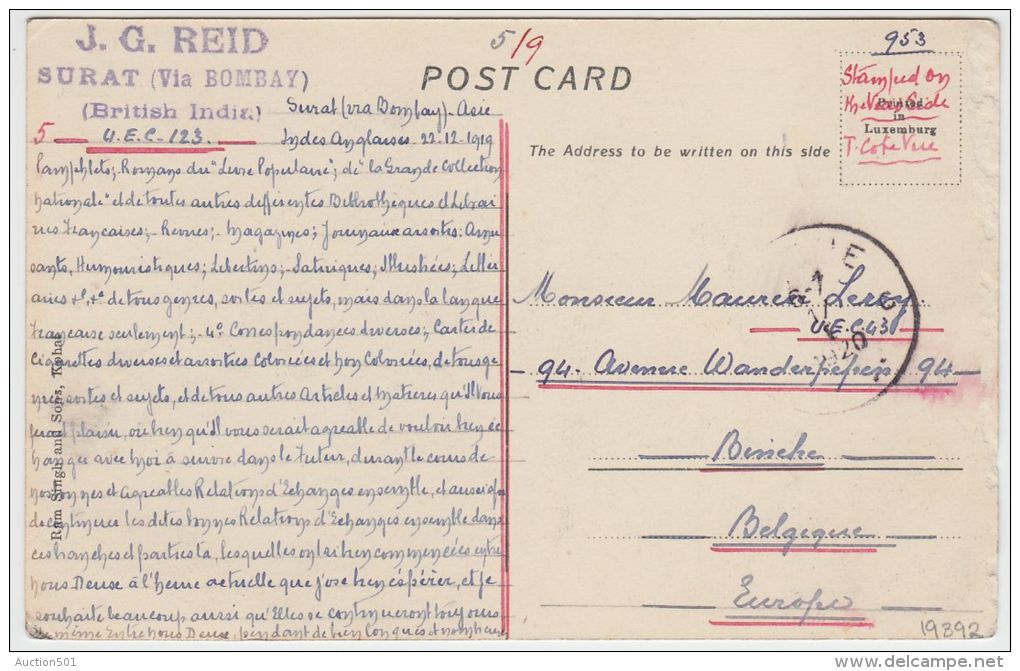 J. G. REID
SURAT (Via BOMBAY)
(British India)
5 — U.E.C.-123. —
Surat (via Bombay). Asie
Indes Anglaises 22-12-1919
5/9
POST CARD
953
Stamped on
the View Side
T.C. Côté Vue
Printed
in
Luxemburg
The Address to be written on this side
Pamphlets; Romans du "Livre Populaire"; de "la Grande Collection
Nationale" et de toutes autres différentes Bibliothèques et Librai
ries Françaises; - Revues; - Magazines; Journaux assortis: Amu
sants, Humouristiques; Libertins; - Satiriques; Illustrées; Litter
aires &c, &c de tous genres, sortes et sujets, mais dans la langue
Française seulement; - 4o. Correspondances diverses; Cartes de
Cigarettes diverses et assorties Coloriées et non Coloriées, de tous ge
nres, sortes et sujets, et de tous autres Articles et Matières qu'il Vous
ferait plaisir, ou bien qu'il vous serait agréable de vouloir bien éc
hanger avec moi à suivre dans le Futur, durant le cours de
nos bonnes et agréables Relations d'Echanges ensemble, et aussi afin
de continuer les dites bonnes Relations d'Echanges ensemble dans
ces branches et parties là, lesquelles ont si bien commencées entre
nous Deux à l'heure actuelle que j'ose bien espérer, et je
souhaite beaucoup aussi qu'Elles se continueront toujours
de même Entre nous Deux, pendant de bien longues et nombreuses
Ram Singh and Sons,
Monsieur Maurice Leroy
— U.E.C. 43 —
- 94. Avenue Wanderpepen 94 -
Binche
Belgique
Europe
1920
19392
Auction501
delcampe.net